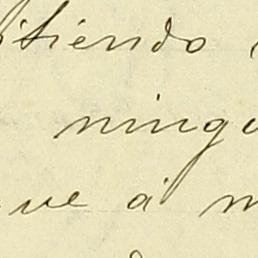 itiendo
ningu
ve á m